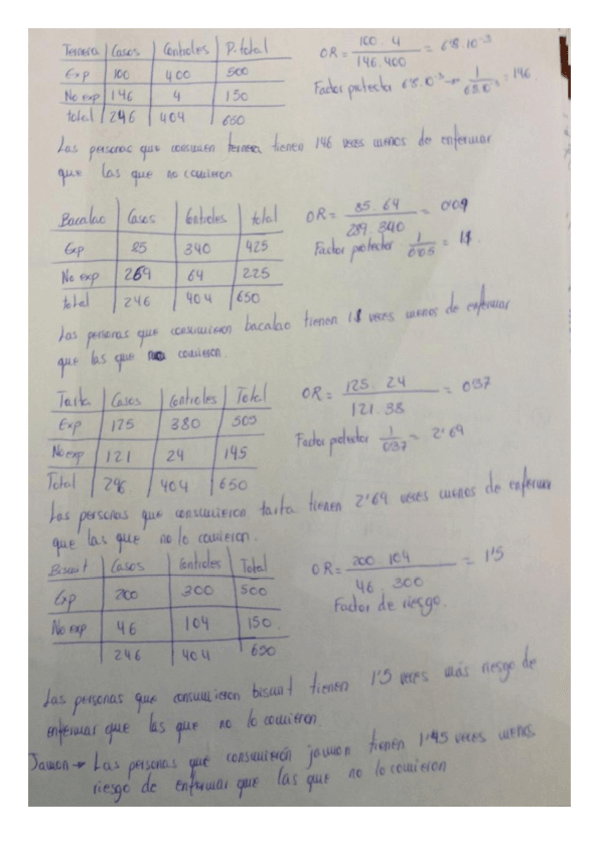 Ternera | Casos | Controles | P. total
Exp | 100 | 400 | 500
No exp | 146 | 4 | 150
total | 246 | 404 | 650
OR = 100 . 4 / 146 . 400 = 6'8 . 10⁻³
Factor protector 6'8.0⁻³ → 1 / = 146.
Las personas que consumen ternera tienen 146 veces menos de enfermar
que las que no comieron
Bacalao | Casos | Controles | total
Exp | 85 | 340 | 425
No exp | 269 | 64 | 225
total | 246 | 404 | 650
OR = 85 . 64 / 289 . 340 = 0'09
Factor protector 1 / = 11.
Las personas que consumieron bacalao tienen 11 veces menos de enfermar
que las que no comieron.
Tarta | Casos | Controles | Total
Exp | 125 | 380 | 505
No exp | 121 | 24 | 145
Total | 246 | 404 | 650
OR = 125 . 24 / 121 . 38 = 0'37
Factor protector 1 / 0'37 = 2'69
Las personas que consumieron tarta tienen 2'69 veces menos de enfermar
que las que no lo comieron.
Biscuit | Casos | Controles | Total
Exp | 200 | 300 | 500
No exp | 46 | 104 | 150.
246 | 404 | 650
OR = 200 . 104 / 46 . 300 = 1'5
Factor de riesgo.
Las personas que consumieron biscuit tienen 1'5 veces más riesgo de
enfermar que las que no lo comieron
Jamon → Las personas que consumieron jamon tienen 1'45 veces menos
riesgo de enfermar que las que no lo comieron